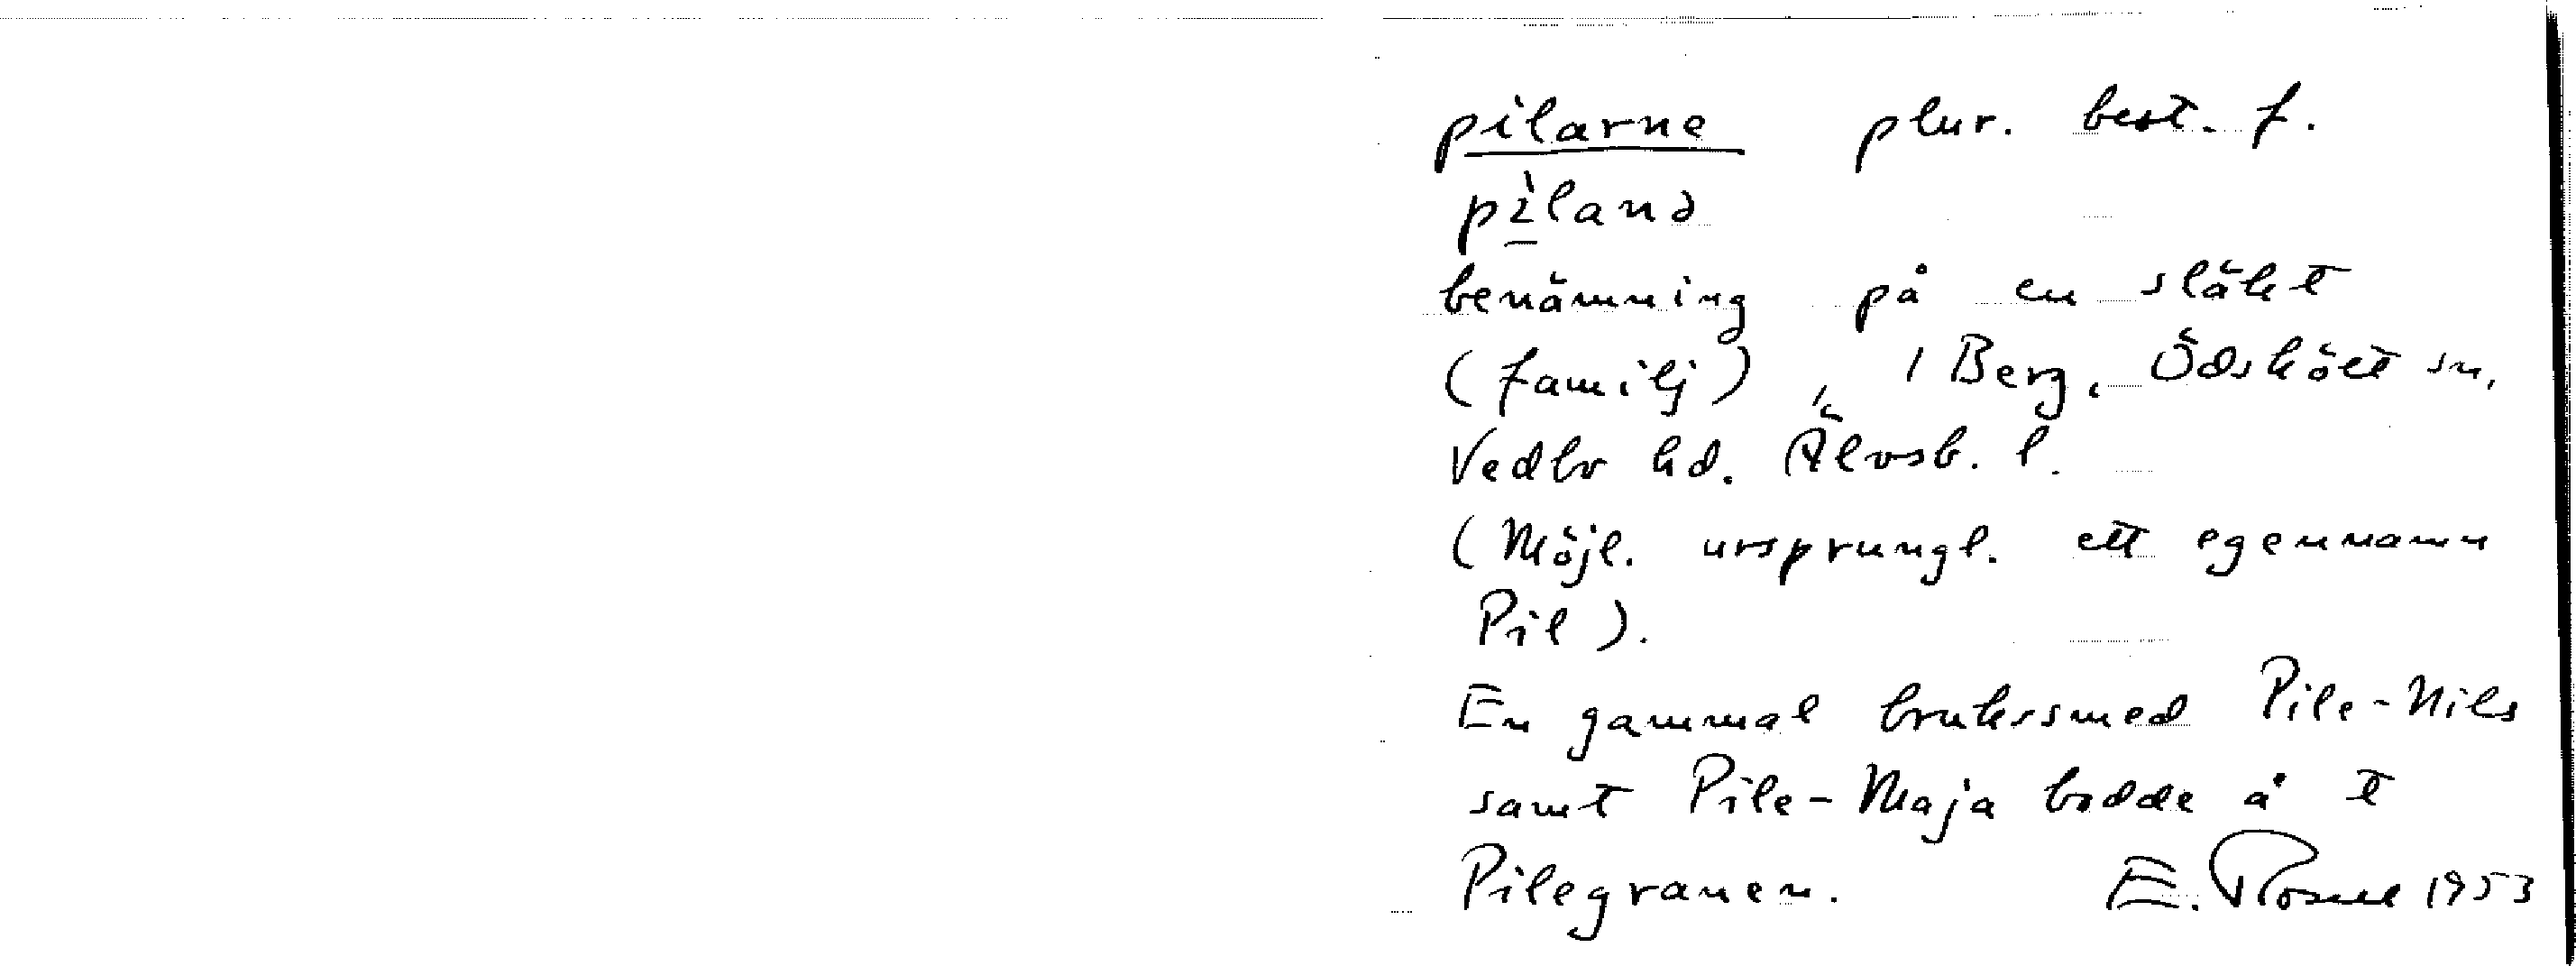 pilarne plur. best. f.
pì̲lanə
benämning på en släkt
(familj), i Berg, Ödskölt sn,
Vedbo hd. Älvsb. l.
(Möjl. ursprungl. ett egennamn
Pil).
En gammal brukssmed Pile-Nils
samt Pile-Maja bodde å t
Pilegranen. E. 1953